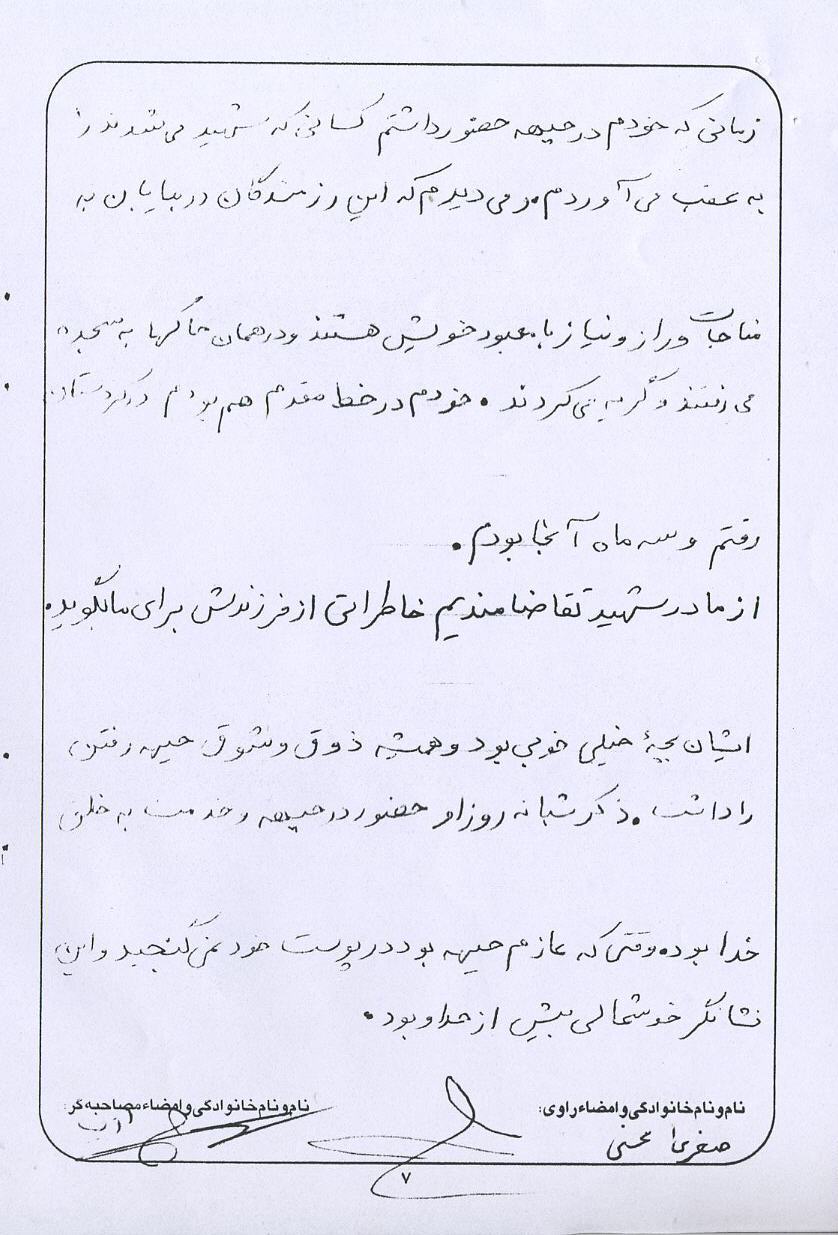 زمانی که خودم در جبهه حضور داشتم کسانی که شهید می شدند را
به عقب می آوردم. و می دیدم که این رزمندگان در بیابان به
مناجات و راز و نیاز با معبود خویش هستند و در همان خاکها به سجده
می رفتند و گریه می کردند. خودم در خط مقدم هم بودم در کردستان
رفتم و سه ماه آنجا بودم.
از مادر شهید تقاضامندیم خاطراتی از فرزندش برای ما بگوید.
ایشان بچۀ خیلی خوبی بود و همیشه ذوق و شوق جبهه رفتن
را داشت. ذکر شبانه روز او حضور در جبهه و خدمت به خلق
خدا بود. وقتی که عازم جبهه بود در پوست خود نمی گنجید و این
نشانگر خوشحالی بیش از حد او بود.
نام و نام خانوادگی و امضاء راوی:
صغری محسنی
نام و نام خانوادگی و امضاء مصاحبه گر:
۷